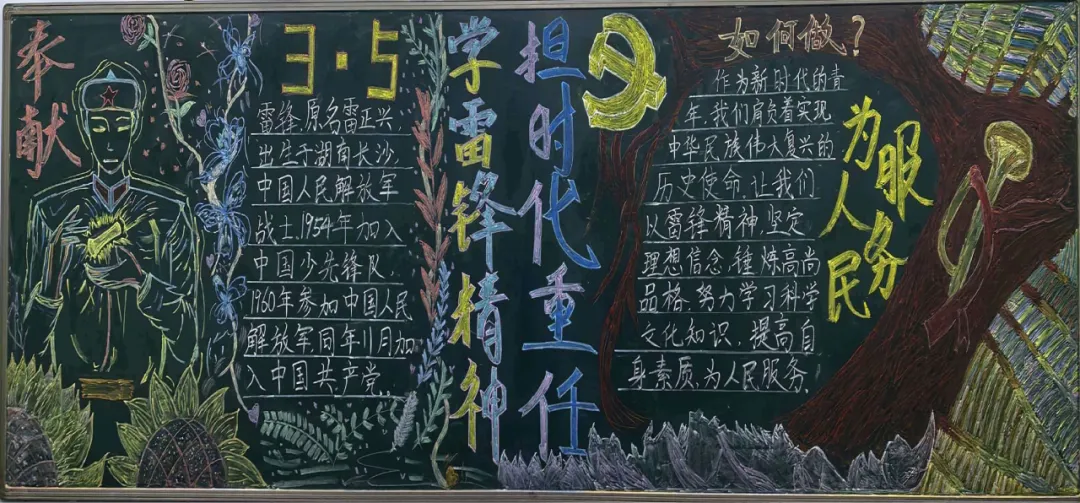 奉献
3·5
雷锋,原名雷正兴
出生于湖南长沙,
中国人民解放军
战士,1954年加入
中国少先锋队,
1960年参加中国人民
解放军,同年11月加
入中国共产党,
学雷锋精神
担时代重任
如何做?
作为新时代的青
年,我们肩负着实现
中华民族伟大复兴的
历史使命,让我们
以雷锋精神,坚定
理想信念,锤炼高尚
品格,努力学习科学
文化知识,提高自
身素质,为人民服务,
为人民
服务